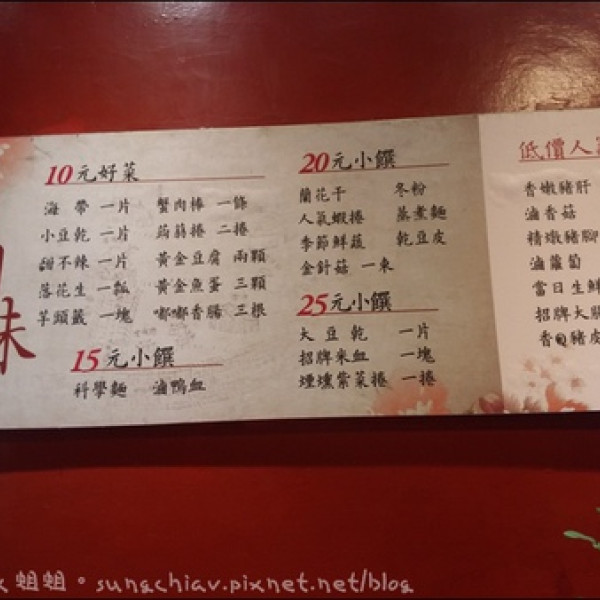 味
10元好菜
海帶 一片 蟹肉棒 一條
小豆乾 一片 蒟蒻捲 二捲
甜不辣 一片 黃金豆腐 兩顆
落花生 一瓢 黃金魚蛋 三顆
芋頭簽 一塊 嘟嘟香腸 三根
15元小饌
科學麵 滷鴨血
20元小饌
蘭花干 冬粉
人氣蝦捲 蒸煮麵
季節鮮蔬 乾豆皮
金針菇 一束
25元小饌
大豆乾 一片
招牌米血 一塊
煙燻紫菜捲 一捲
低價人氣
香嫩豬肝
滷香菇
精燉豬腳
滷蘿蔔
當日生鮮
招牌大腸
香Q豬皮
蛆蛆。sungchiav.pixnet.net/blog